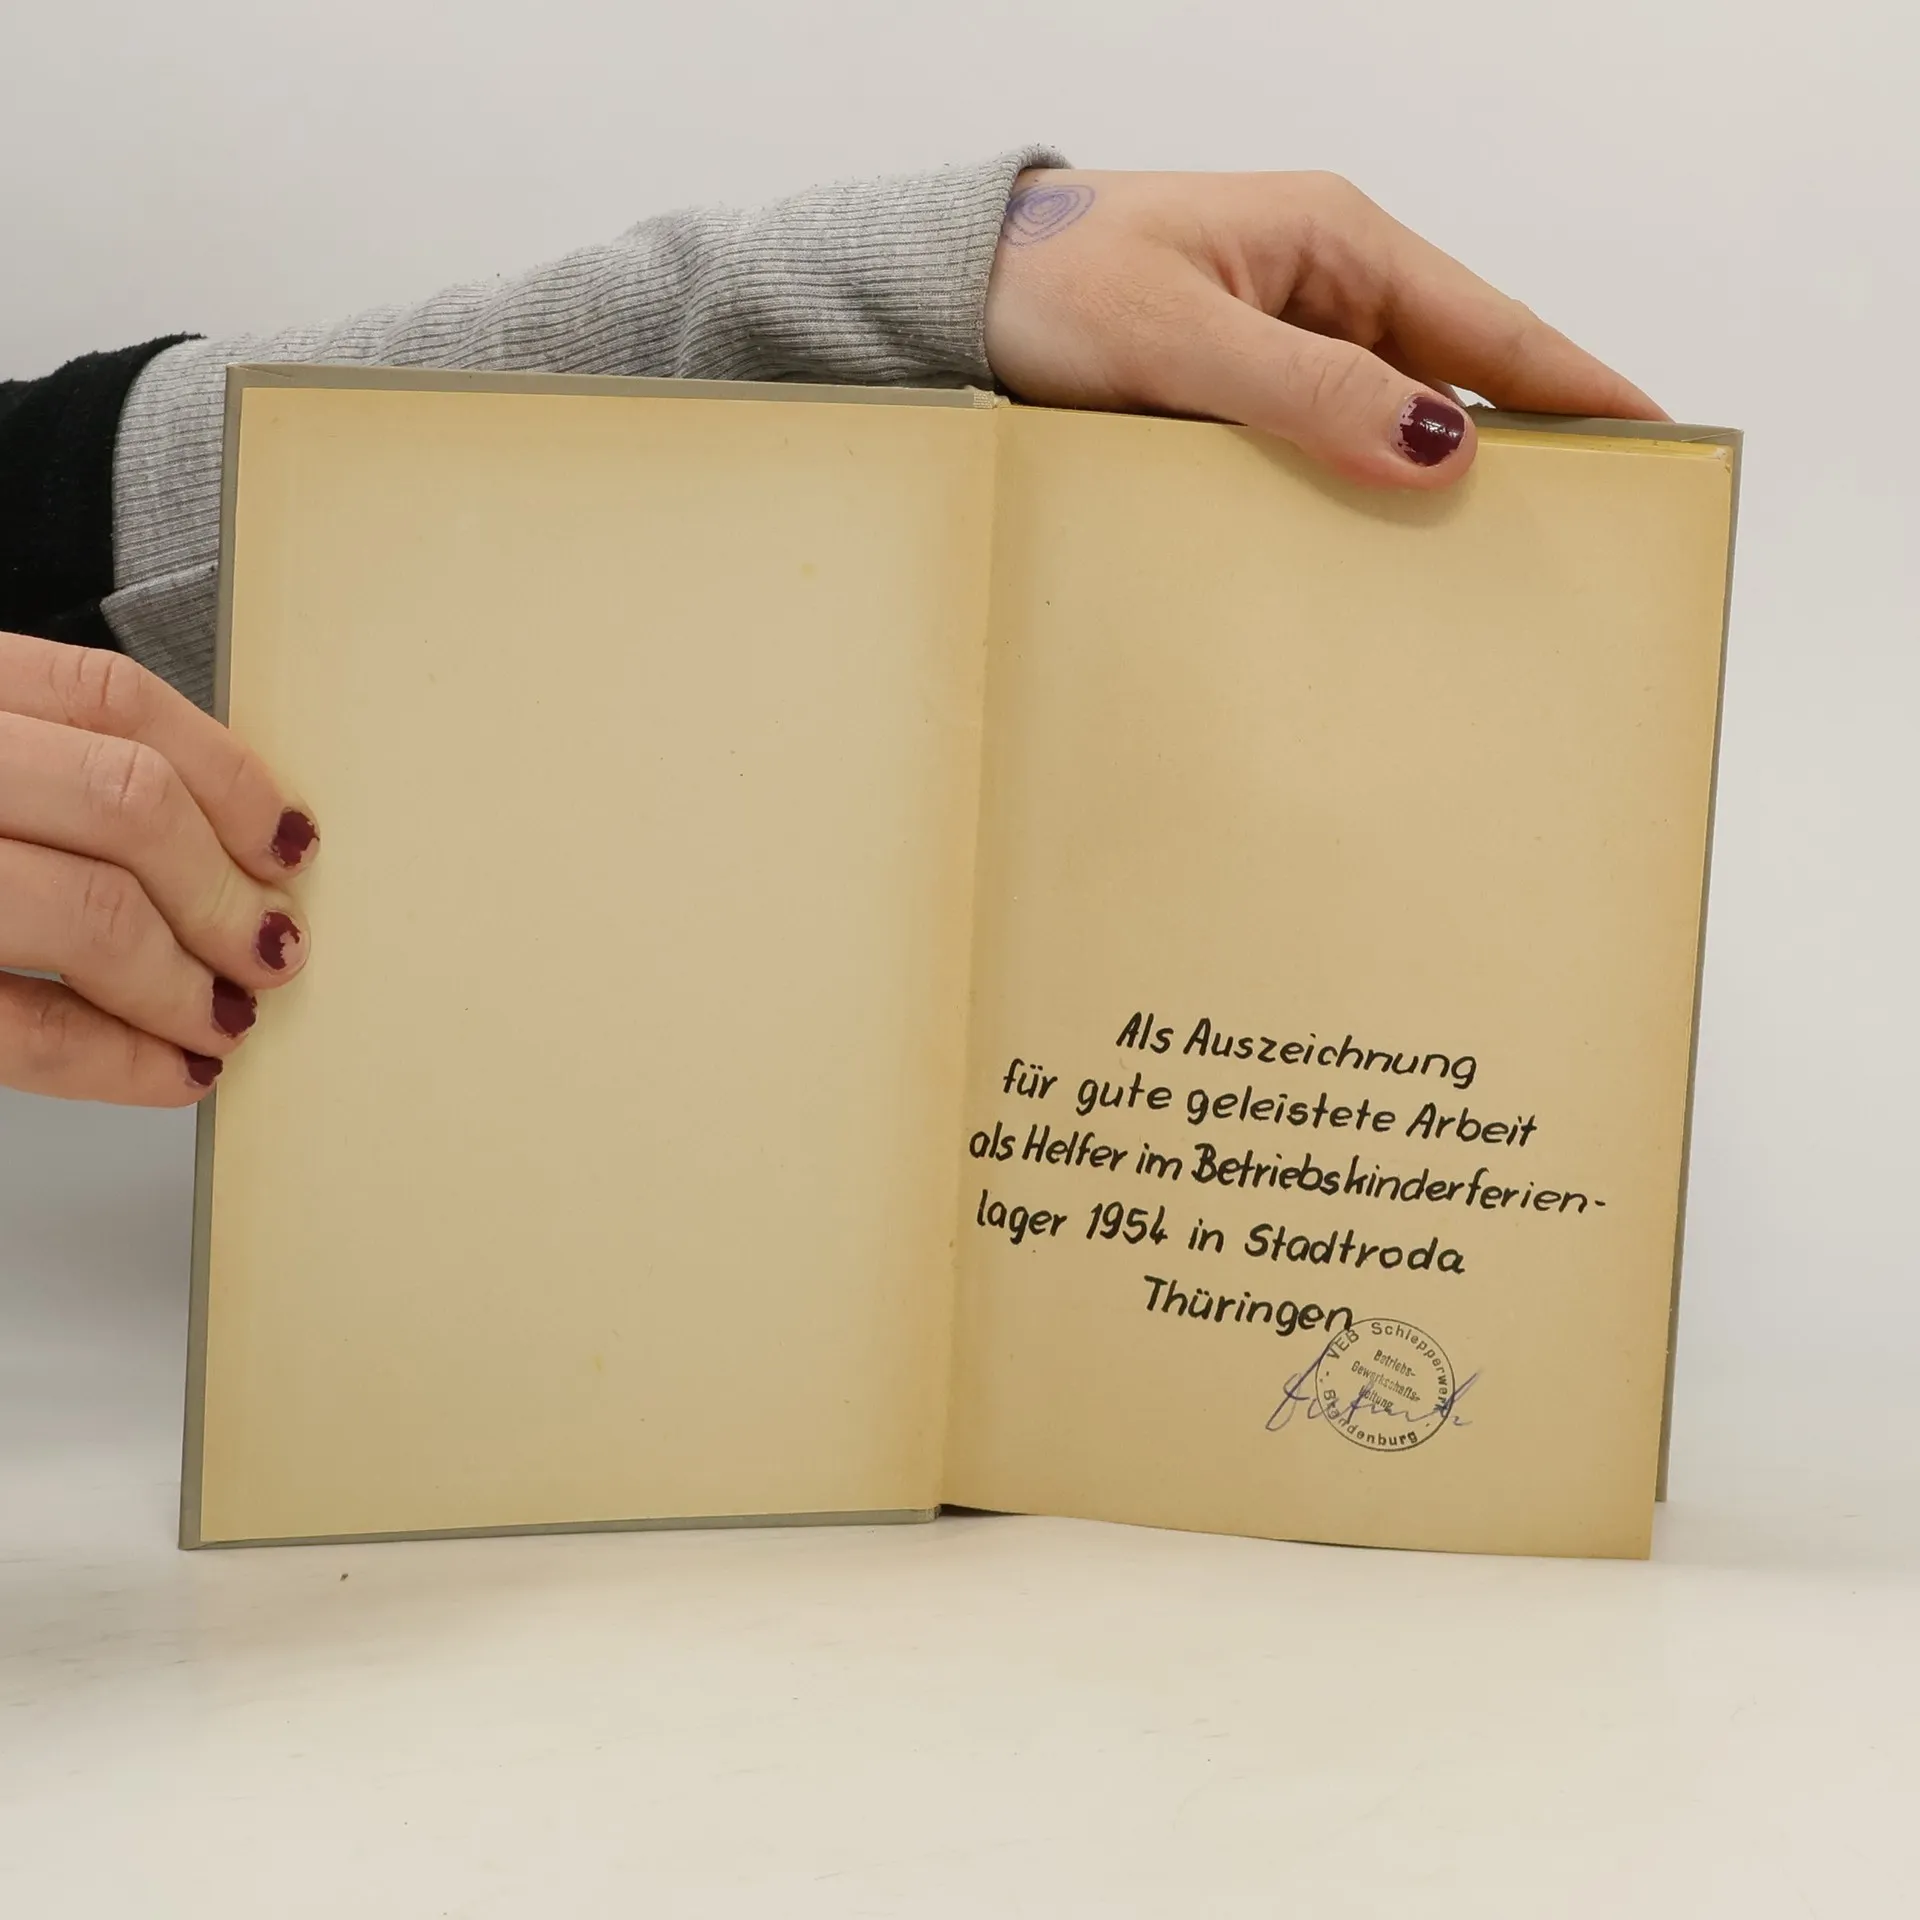 Als Auszeichnung
für gute geleistete Arbeit
als Helfer im Betriebskinderferien-
lager 1954 in Stadtroda
Thüringen
VEB Schlepperwerk
Betriebs-
Gewerkschafts-
leitung
Brandenburg